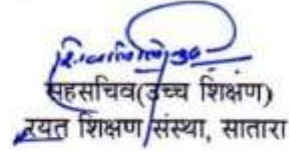 सहसचिव(उच्च शिक्षण)
रयत शिक्षण संस्था, सातारा